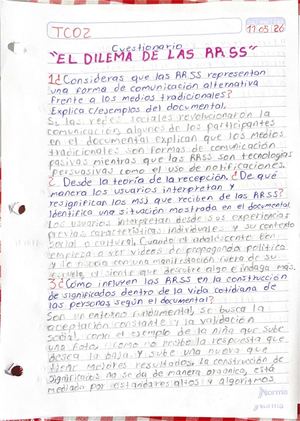 TC02
11 05 26
Cuestionario
"EL DILEMA DE LAS RR.SS"
1¿Consideras que las RRSS representan
una forma de comunicación alternativa
frente a los medios tradicionales?
Explica c/ejemplos del documental.
Si, las redes sociales revolucionaron la
comunicación, algunos de los participantes
en el documental explican que los medios
tradicionales son formas de comunicación
pasivas mientras que las RRSS son tecnologías
persuasivas como el uso de notificaciones.
2 Desde la teoría de la recepción. ¿De qué
manera los usuarios interpretan y
resignifican los msj que reciben de las RRSS?
Identifica una situación mostrada en el documental
Los usuarios interpretan desde sus experiencias
previas características individuales y su contexto
social o cultural. Cuando el adolescente Ben
empieza a ver videos de propaganda política
y le inicia con una manifestación fuera de su
escuela, el siente que descubre algo e indaga más.
3¿Cómo influyen las RRSS en la construcción
de significados dentro de la vida cotidiana de
las personas según el documental?
Son un entorno fundamental, se busca la
aceptación constante y la validación
social, como el ejemplo de la niña que sube
una foto, como no recibe la respuesta que
desea la baja y sube una nueva que
tiene mejores resultados. La construcción de
significados no se da de manera organica, está
mediado por estandares altos y algoritmos
Norma